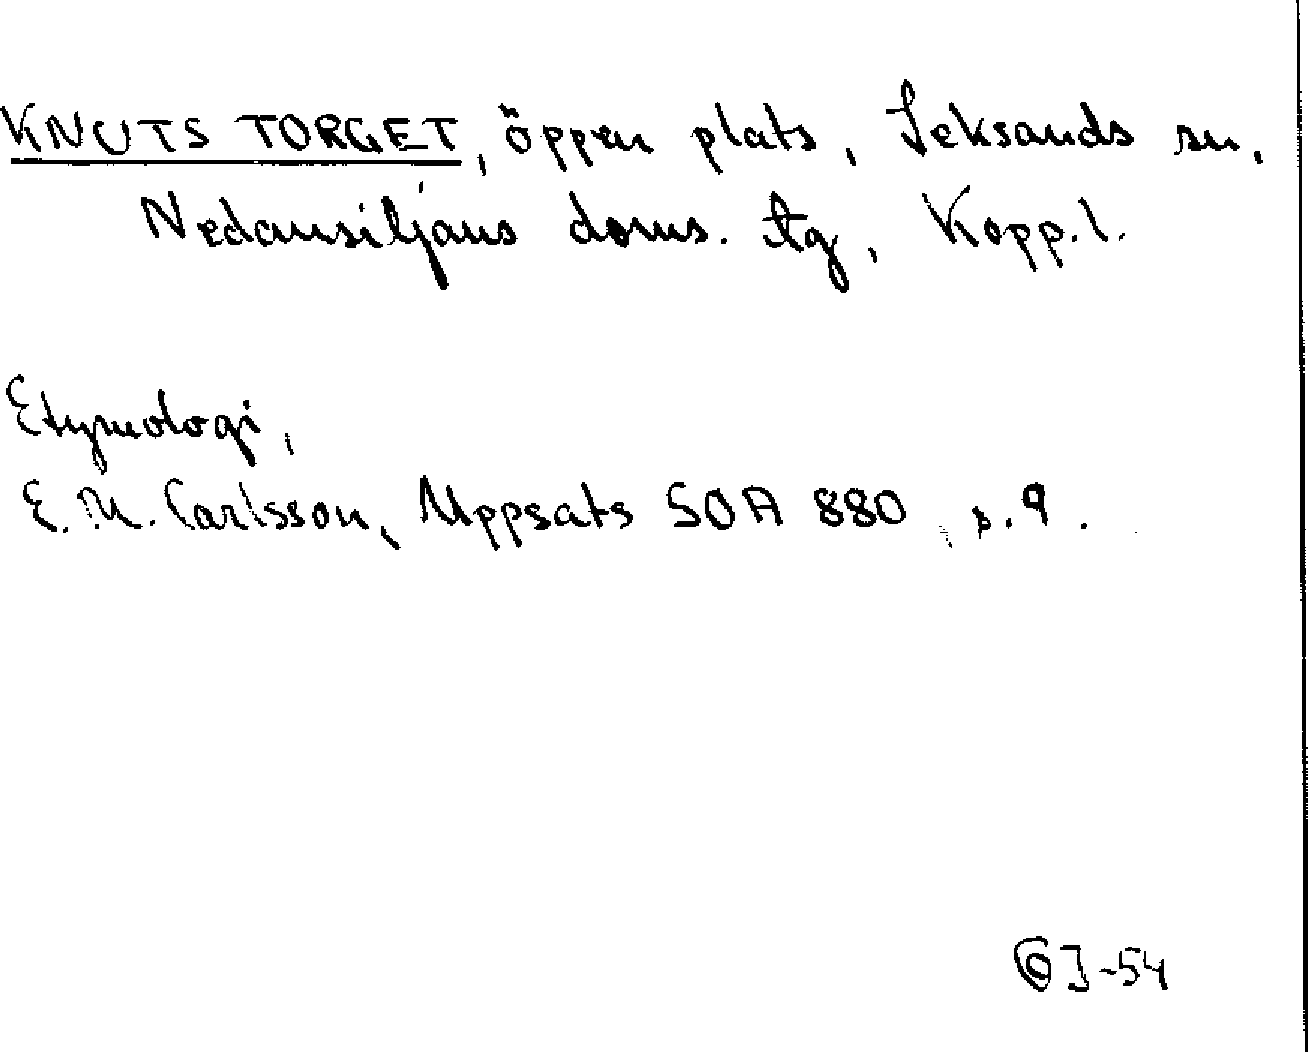 KNUTS TORGET, öppen plats, Leksands sn,
Nedansiljans doms. tg, Kopp. l.
Etymologi,
E. M. Carlsson, Uppsats SOA 880, s. 9.
J-54